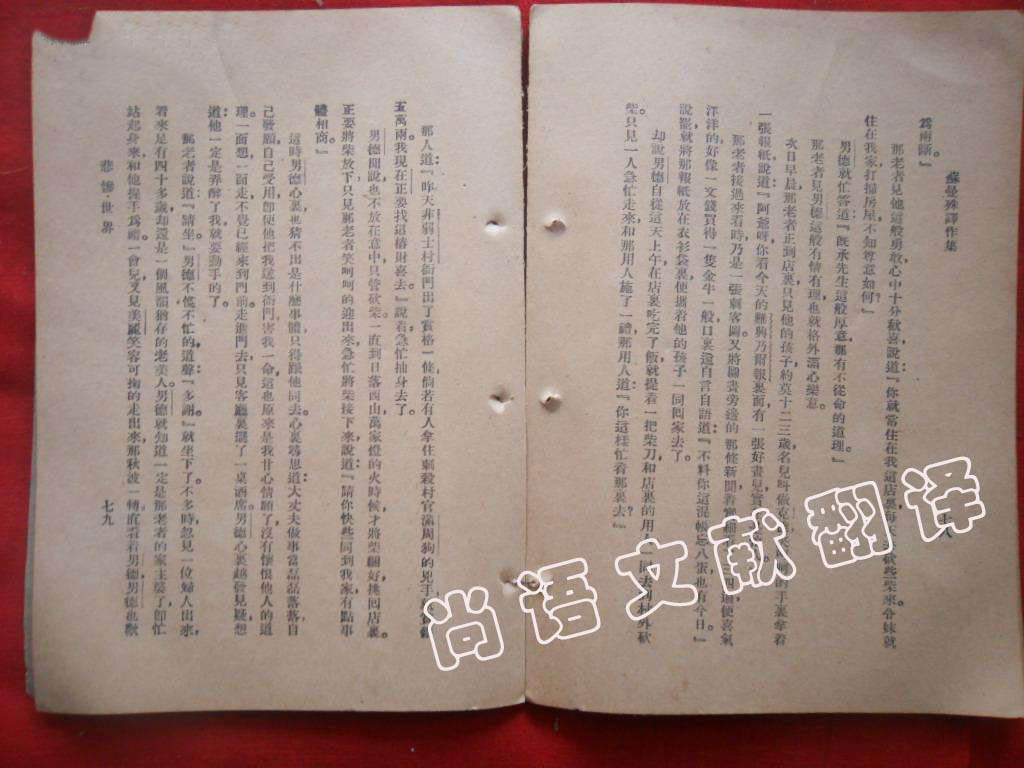 蘇曼殊譯作集
爲兩斷。』
那老者見他這般勇敢心中十分歡喜說道『你就常住在我這店裏每
砍些柴來分妹就
住在我家打掃房屋不知尊意如何?』
男德就忙答道:『旣承先生這般厚意那有不從命的道理。』
那老者見男德這般有情有理也就格外滿心樂意。
次日早晨那老者正到店裏只見他的孩子約莫十二三歲名兒叫做克
的手裏拿着
一張報紙說道:『阿爺呀你看今天的難興乃爾報裏面有一張好畫兒實
那老者接過來看時乃是一張刺客圖又將圖畫旁邊的那條新聞看
便喜氣
洋洋的好像一文錢買得一隻金牛一般口裏還自言自語道:『不料你這混帳忘八蛋也有今日』
說罷就將那報紙放在衣衫袋裏便攜着他的孩子一同回家去了。
却說男德自從這天上午在店裏吃完了飯就提着一把柴刀和店裏的用人一同去到村外砍
柴。只見一人急忙走來和那用人施了一禮那用人道:『你這樣忙着那裏去?』
那人道:『昨天非弱士村衙門出了賞格一條倘若有人拿住刺殺村官滿周狗的兇手
五萬兩。我現在正要找這樁財喜去。』說着急忙抽身去了。
男德聞說也不放在意中只管砍柴。一直到日落西山萬家燈的火時候才將柴捆好挑囘店裏。
正要將柴放下只見那老者笑呵呵的迎出來急忙將柴接下來說道:『請你快些同到我家有點事
體相商。』
這時男德心裏也猜不出是什麼事體只得跟他同去心裏尋思道:大丈夫做事當磊磊落落自
己發願自己受用卽使他把我送到衙門害我一命這也原來是我甘心情願了沒有懷恨他人的道
理。一面想一面走不覺已經來到門前走進門去只見客廳裏擺了一桌酒席男德心裏越發見疑想
道:他一定是弄醉了我就要動手的了。
那老者說道:『請坐』男德不慌不忙的道聲『多謝』就坐下了。不多時忽見一位婦人出來
看來足有四十多歲却還是一個風韻猶存的老美人男德就知道一定是那老者的家主婆了卽忙
站起身來和他握手爲禮一會兒又見美麗笑容可掬的走出來那秋波一轉直看着男德男德也歡
悲慘世界
七九
尚语文献翻译